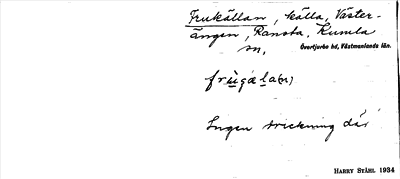 Frukällan, källa, Väster-
ängen, Ransta, Kumla
sn, Övertjurbo hd, Västmanlands län.
frùgæla(n)
Ingen drickning där
HARRY STÅHL 1934